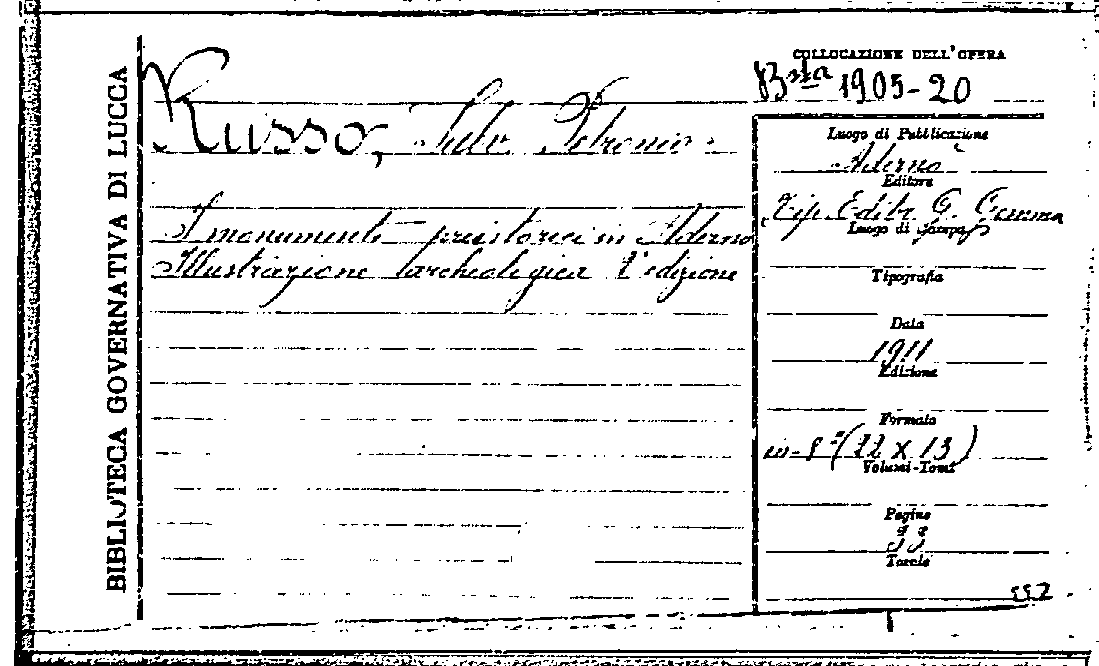 BIBLIOTECA GOVERNATIVA DI LUCCA
COLLOCAZIONE DELL'OPERA
Bsta 1905-20
Russo, Salv. Petronio
I monumenti preistorici in Adernò
Illustrazione archeologica 1ª edizione
Luogo di Pubblicazione
Adernò
Editore
Tip. Editr. G. Gemma
Luogo di Stampa
Tipografia
Data
1911
Edizione
Formato
in-8º (22 x 13)
Volumi-Tomi
Pagine
33
Tavole
552